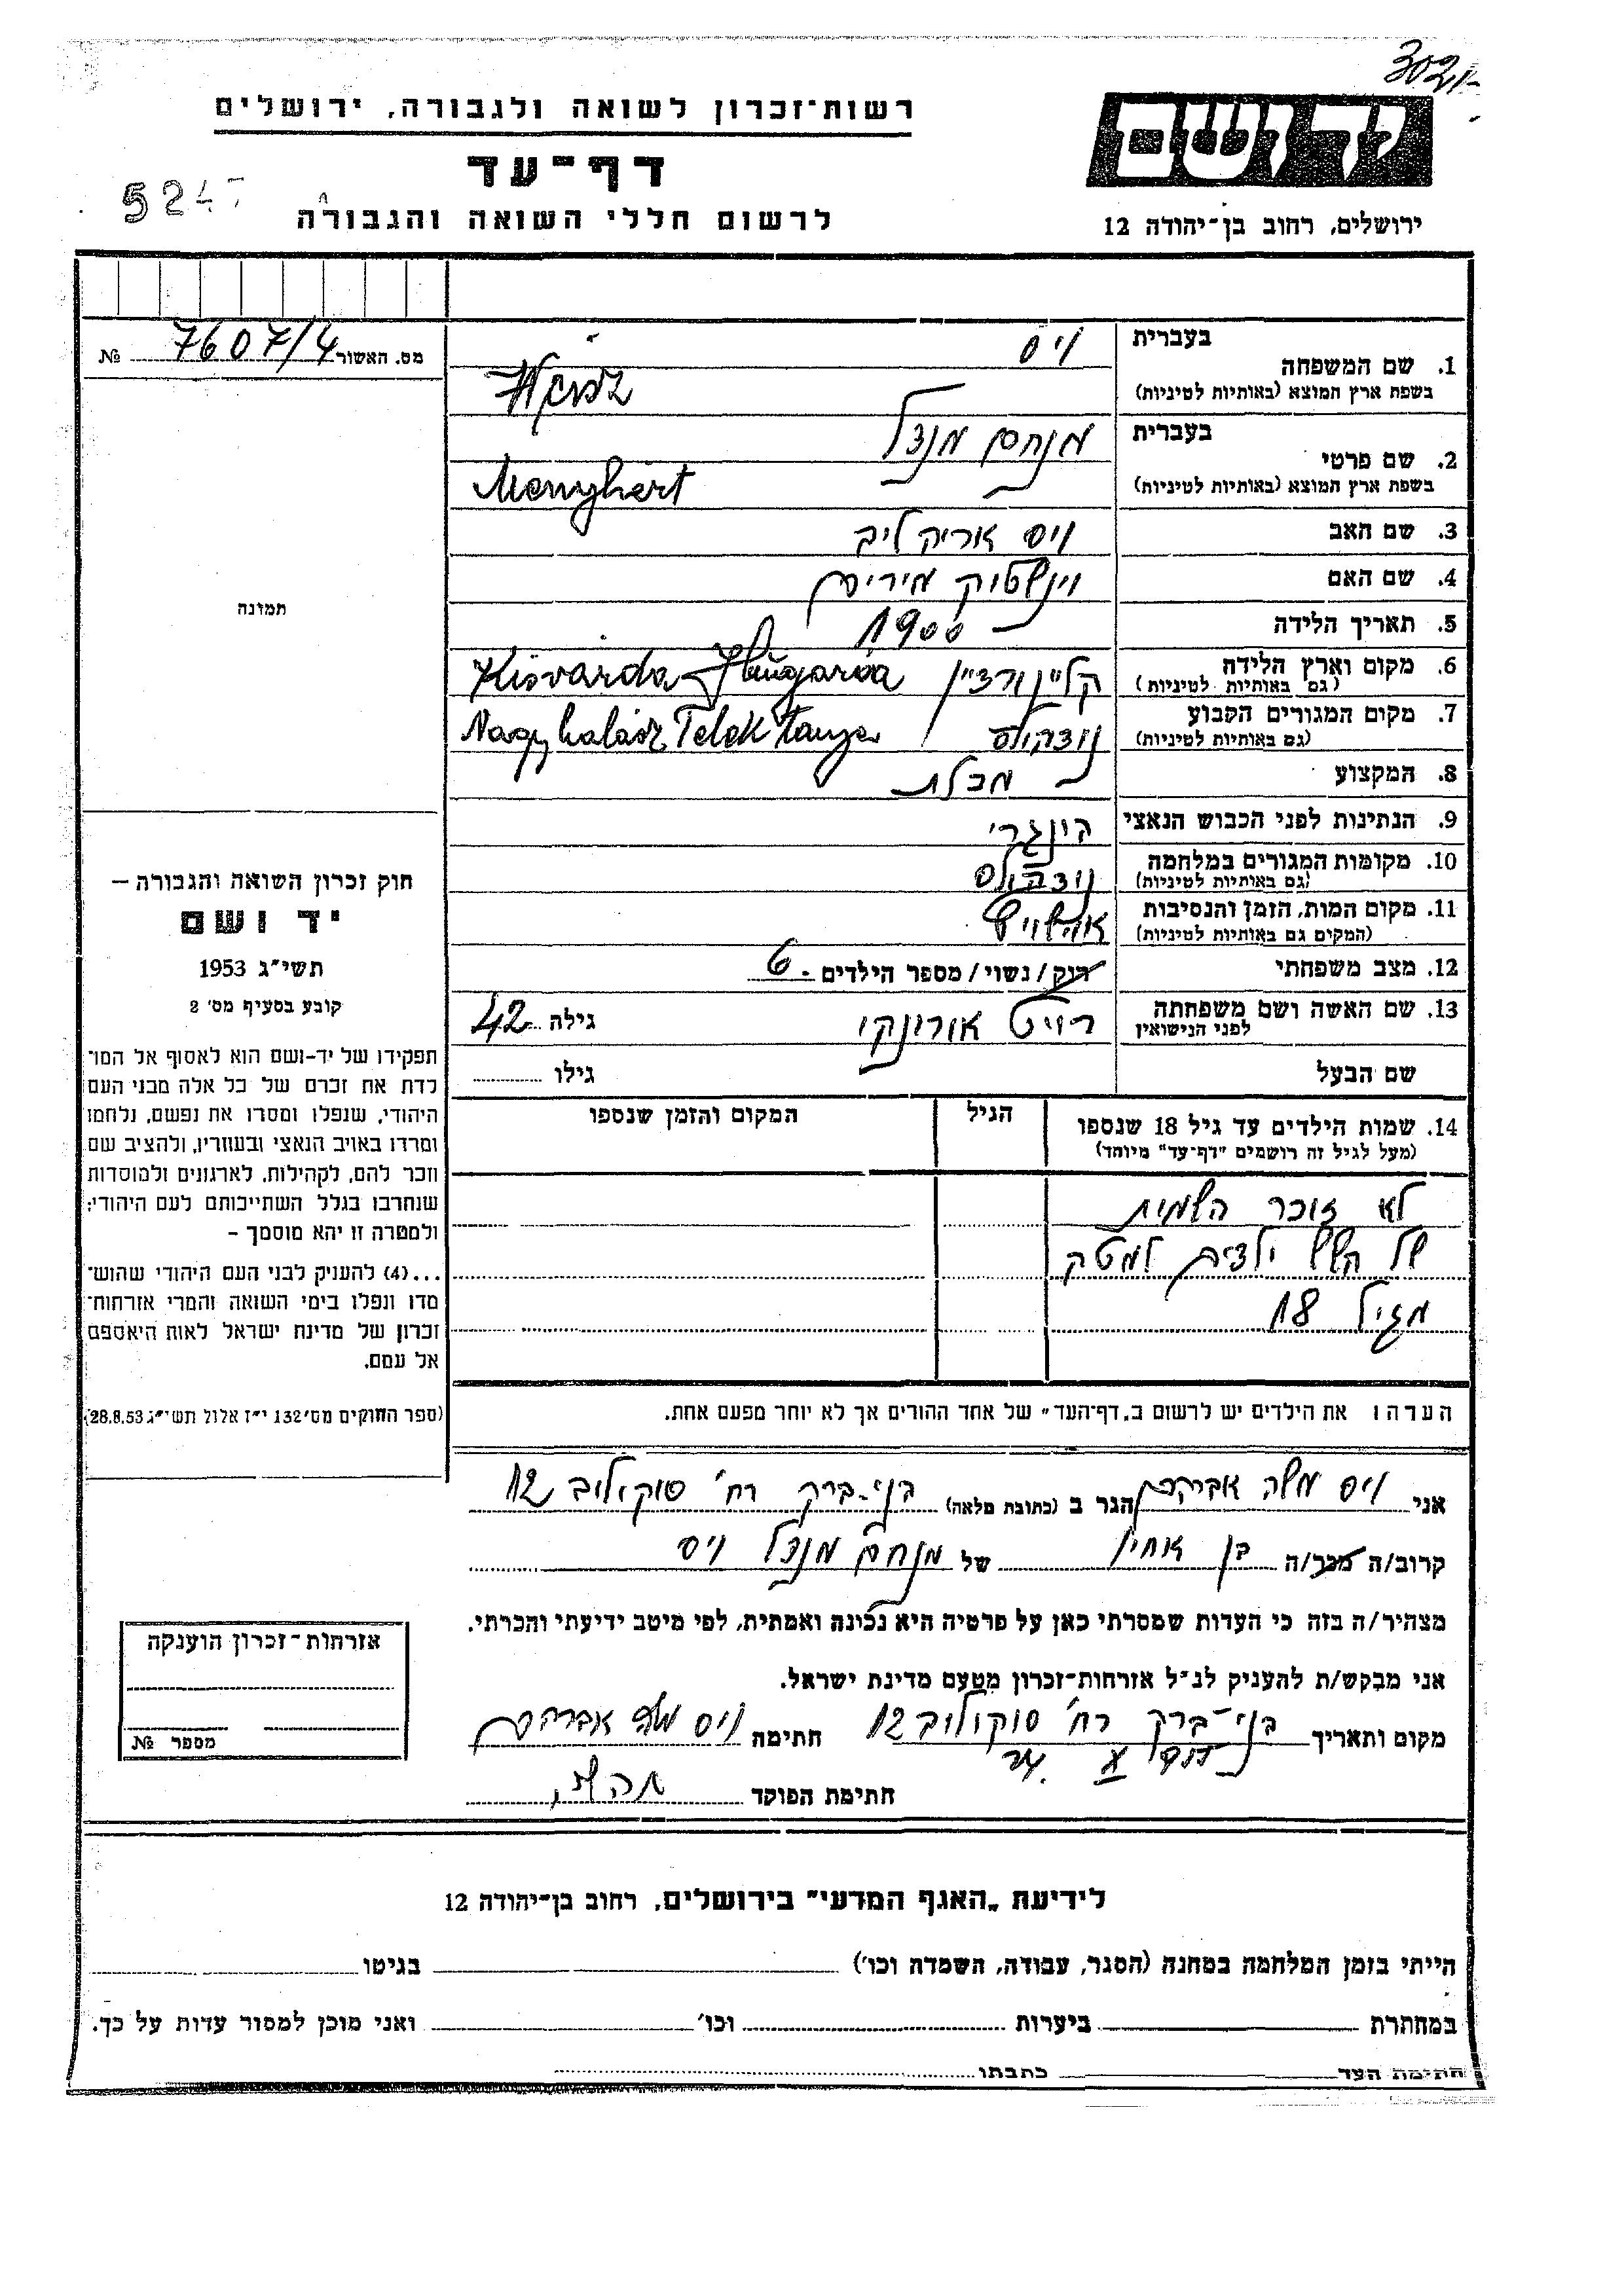 רשות־זכרון לשואה ולגבורה, ירושלים
דף־עד
לרשום חללי השואה והגבורה
ירושלים, רחוב בן־יהודה 12
מס. האשור 7607/4 №
תמונה
חוק זכרון השואה והגבורה —
יד ושם
תשי״ג 1953
קובע בסעיף מס׳ 2
תפקידו של יד-ושם הוא לאסוף אל המו־
לדת את זכרם של כל אלה מבני העם
היהודי, שנפלו ומסרו את נפשם, נלחמו
ומרדו באויב הנאצי ובעוזריו, ולהציב שם
וזכר להם, לקהילות, לארגונים ולמוסדות
שנחרבו בגלל השתייכותם לעם היהודי;
ולמטרה זו יהא מוסמך –
...(4) להעניק לבני העם היהודי שהוש־
מדו ונפלו בימי השואה והמרי אזרחות־
זכרון של מדינת ישראל לאות היאספם
אל עמם.
(ספר החוקים מס׳ 132 י״ז אלול תשי״ג 28.8.53)
בעברית
ויס
1. שם המשפחה
בשפת ארץ המוצא (באותיות לטיניות)
בעברית
מנחם מנדל
2. שם פרטי
בשפת ארץ המוצא (באותיות לטיניות)
Menyhért
3. שם האב
ויס אריה ליב
4. שם האם
וינשטוק מירים
5. תאריך הלידה
1900
6. מקום וארץ הלידה
(גם באותיות לטיניות)
קליינורדיין Kisvarda Hungaria
7. מקום המגורים הקבוע
(גם באותיות לטיניות)
Nagyhalász Telek tanya
8. המקצוע
9. הנתינות לפני הכבוש הנאצי
הונגרי
10. מקומות המגורים במלחמה
(גם באותיות לטיניות)
11. מקום המות, הזמן והנסיבות
(המקום גם באותיות לטיניות)
אושויץ
12. מצב משפחתי
רוק/נשוי/מספר הילדים 6
13. שם האשה ושם משפחתה
לפני הנישואין
גילה 42
שם הבעל
גילו
14. שמות הילדים עד גיל 18 שנספו
(מעל לגיל זה רושמים ״דף־עד״ מיוחד)
הגיל
המקום והזמן שנספו
לא זוכר השמות
של השש ילדים למטה
מגיל 18
הערה: את הילדים יש לרשום ב„דף־העד״ של אחד ההורים אך לא יוחר מפעם אחת.
אני ויס משה אברהם הגר ב (כתובת מלאה) בני-ברק רח׳ סוקולוב 12
קרוב/ה מכר/ה בן אחיו של מנחם מנדל ויס
מצהיר/ה בזה כי העדות שמסרתי כאן על פרטיה היא נכונה ואמתית, לפי מיטב ידיעתי והכרתי.
אני מבקש/ת להעניק לנ״ל אזרחות־זכרון מטעם מדינת ישראל.
מקום ותאריך בני-ברק רח׳ סוקולוב 12 חתימה ויס משה אברהם
חתימת הפוקד
אזרחות־זכרון הוענקה
מספר №
לידיעת „האגף המדעי״ בירושלים, רחוב בן־יהודה 12
הייתי בזמן המלחמה במחנה (הסגר, עבודה, השמדה וכו׳) בגיטו
במחתרת ביערות וכו׳ ואני מוכן למסור עדות על כך.
חתימת העד כתבתו